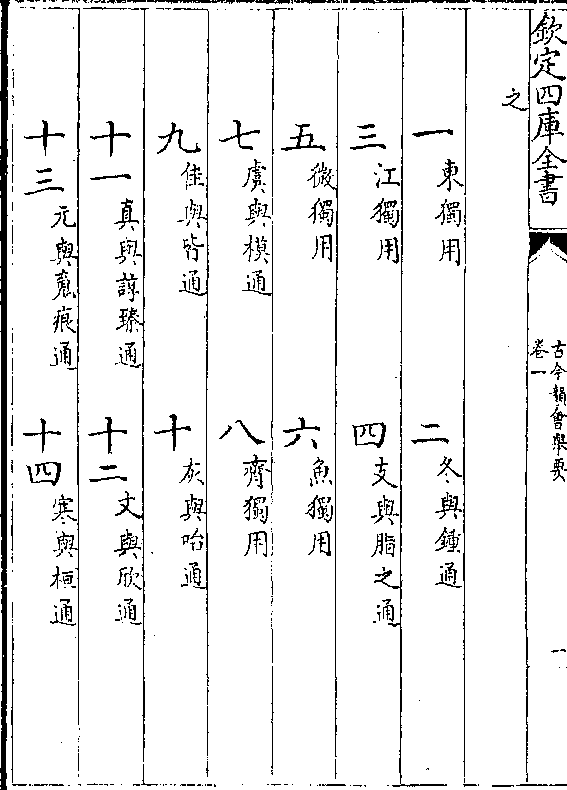 欽定四庫全書
古今韻會舉要
卷一
一
之
一東獨用 二冬與鍾通
三江獨用 四支與脂之通
五微獨用 六魚獨用
七虞與模通 八齊獨用
九佳與皆通 十灰與咍通
十一真與諄臻通 十二文與欣通
十三元與䰟痕通 十四寒與桓通